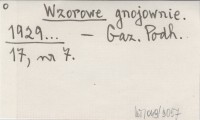 Wzorowe gnojownie.
1929... — Gaz. Podh.
17, nr 7.